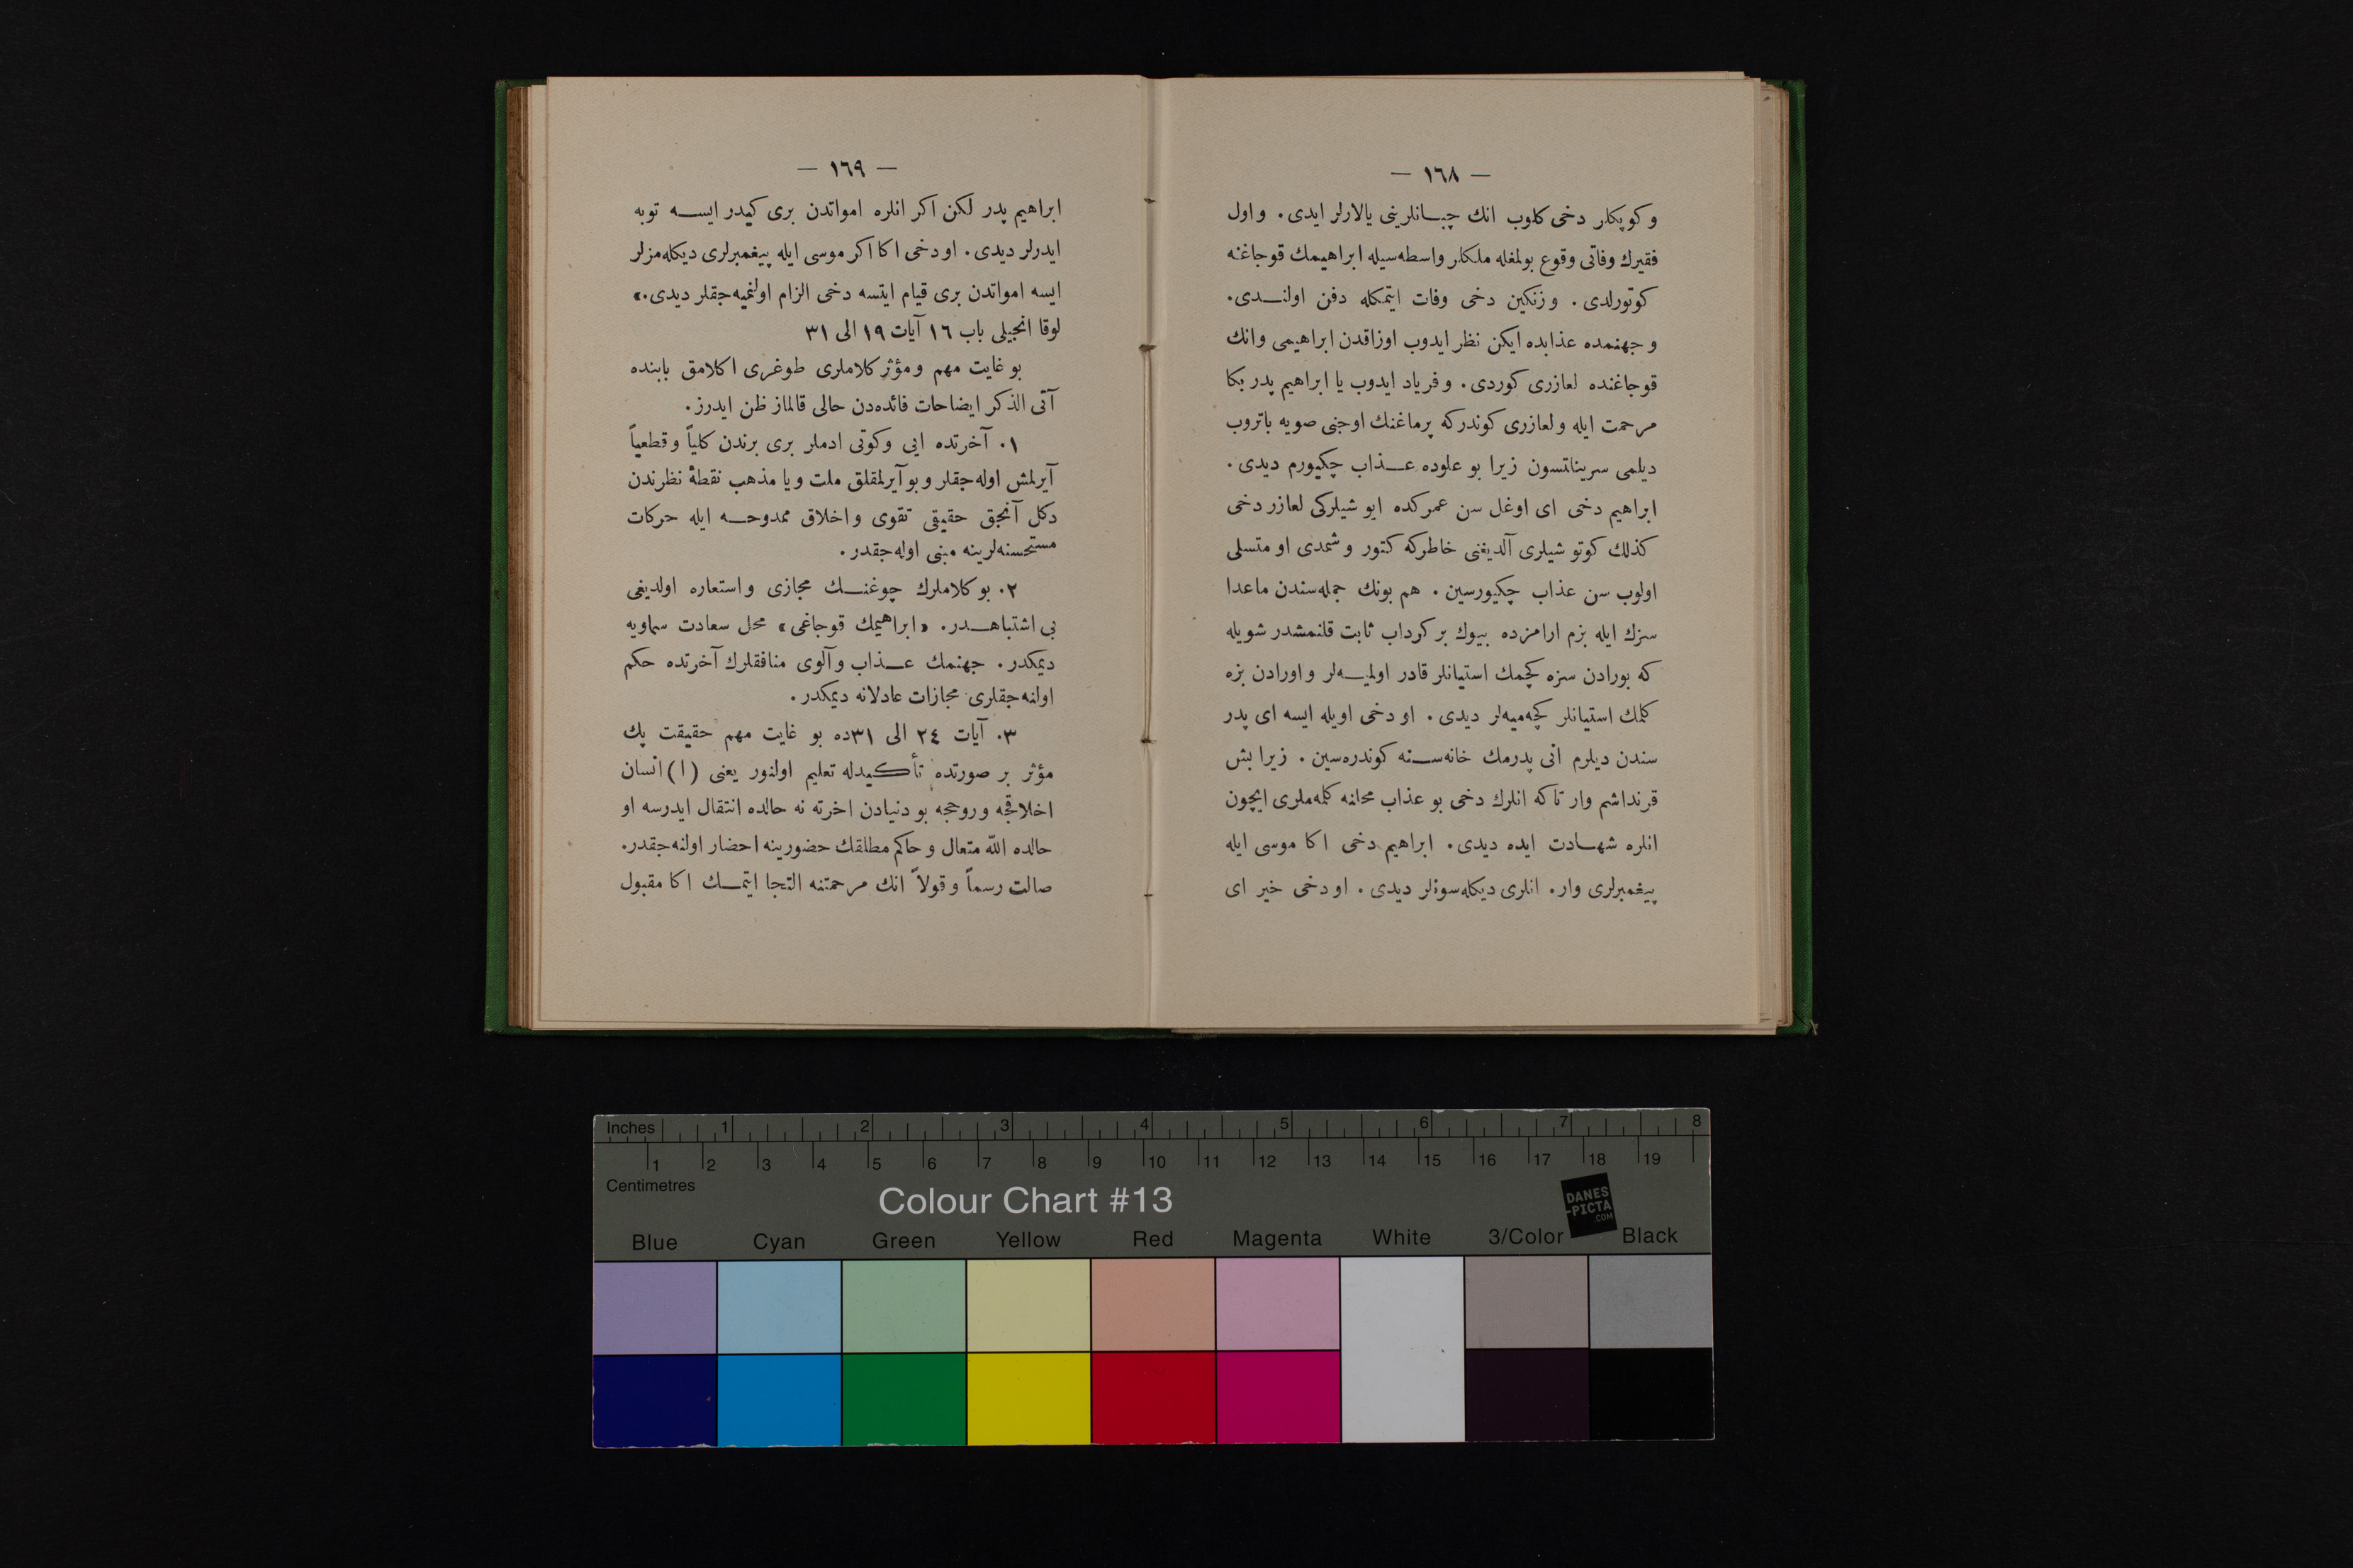 — ١٦٨ —
و كوپكلر دخى كلوب انك چبـانلرينى يالارلر ايدى. و اول
فقيرك وفاتى وقوع بولمغله ملكلر واسطه‌سيله ابراهيمك قوجاغنه
كوتورلدى. و زنكين دخى وفات ايتمكله دفن اولنـدى.
و جهنمده عذابده ايكن نظر ايدوب اوزاقدن ابراهيمى وانك
قوجاغنده لعازرى كوردى. و فرياد ايدوب يا ابراهيم پدر بكا
مرحمت ايله و لعازرى كوندركه پرماغنك اوجنى صويه باتروب
ديلمى سرينلتسون زيرا بو علوده عـذاب چكيورم ديدى.
ابراهيم دخى اى اوغل سن عمركده ايو شيلركى لعازر دخى
كذلك كوتو شيلرى آلديغنى خاطركه كتور و شمدى او متسلى
اولوب سن عذاب چكيورسين. هم بونك جمله‌سندن ماعدا
سزك ايله بزم ارامزده بيوك بر كرداب ثابت قلنمشدر شويله
كه بورادن سزه كچمك استيانلر قادر اولميـه‌لر و اورادن بزه
كلمك استيانلر كچه‌ميه‌لر ديدى. او دخى اويله ايسه اى پدر
سندن ديلرم انى پدرمك خانه‌سـنه كوندره‌سين. زيرا بش
قرنداشم وار تاكه انلرك دخى بو عذاب محلنه كلمه‌ملرى ايچون
انلره شهـادت ايده ديدى. ابراهيم دخى اكا موسى ايله
پيغمبرلرى وار. انلرى ديكله‌سونلر ديدى. او دخى خير اى
— ١٦٩ —
ابراهيم پدر لكن اكر انلره امواتدن برى كيدر ايسـه توبه
ايدرلر ديدى. او دخى اكا اكر موسى ايله پيغمبرلرى ديكله‌مزلر
ايسه امواتدن برى قيام ايتسه دخى الزام اولنميه‌جقلر ديدى.»
لوقا انجيلى باب ١٦ آيات ١٩ الى ٣١
بو غايت مهم و مؤثر كلاملرى طوغرى اكلامق بابنده
آتى الذكر ايضاحات فائده‌دن خالى قالماز ظن ايدرز.
١. آخرتده ايى و كوتى ادملر برى برندن كلياً و قطعياً
آيرلمش اوله‌جقلر و بو آيرلمقلق ملت و يا مذهب نقطهٔ نظرندن
دكل آنجق حقيقى تقوى و اخلاق ممدوحـه ايله حركات
مستحسنه‌لرينه مبنى اوله‌جقدر.
٢. بو كلاملرك چوغنـك مجازى و استعاره اولديغى
بى اشتباهـدر. «ابراهيمك قوجاغى» محل سعادت سماويه
ديمكدر. جهنمك عـذاب و آلوى منافقلرك آخرتده حكم
اولنه‌جقلرى مجازات عادلانه ديمكدر.
٣. آيات ٢٤ الى ٣١ده بو غايت مهم حقيقت پك
مؤثر بر صورتده تأكيدله تعليم اولنور يعنى (١) انسان
اخلاقجه و روحجه بو دنيادن اخرته نه حالده انتقال ايدرسه او
حالده الله متعال و حاكم مطلقك حضورينه احضار اولنه‌جقدر.
صالت رسماً و قولاً انك مرحمتنه التجا ايتمـك اكا مقبول
Inches 1 2 3 4 5 6 7 8
1 2 3 4 5 6 7 8 9 10 11 12 13 14 15 16 17 18 19
Centimetres
Colour Chart #13
DANES
-PICTA
.COM
Blue Cyan Green Yellow Red Magenta White 3/Color Black